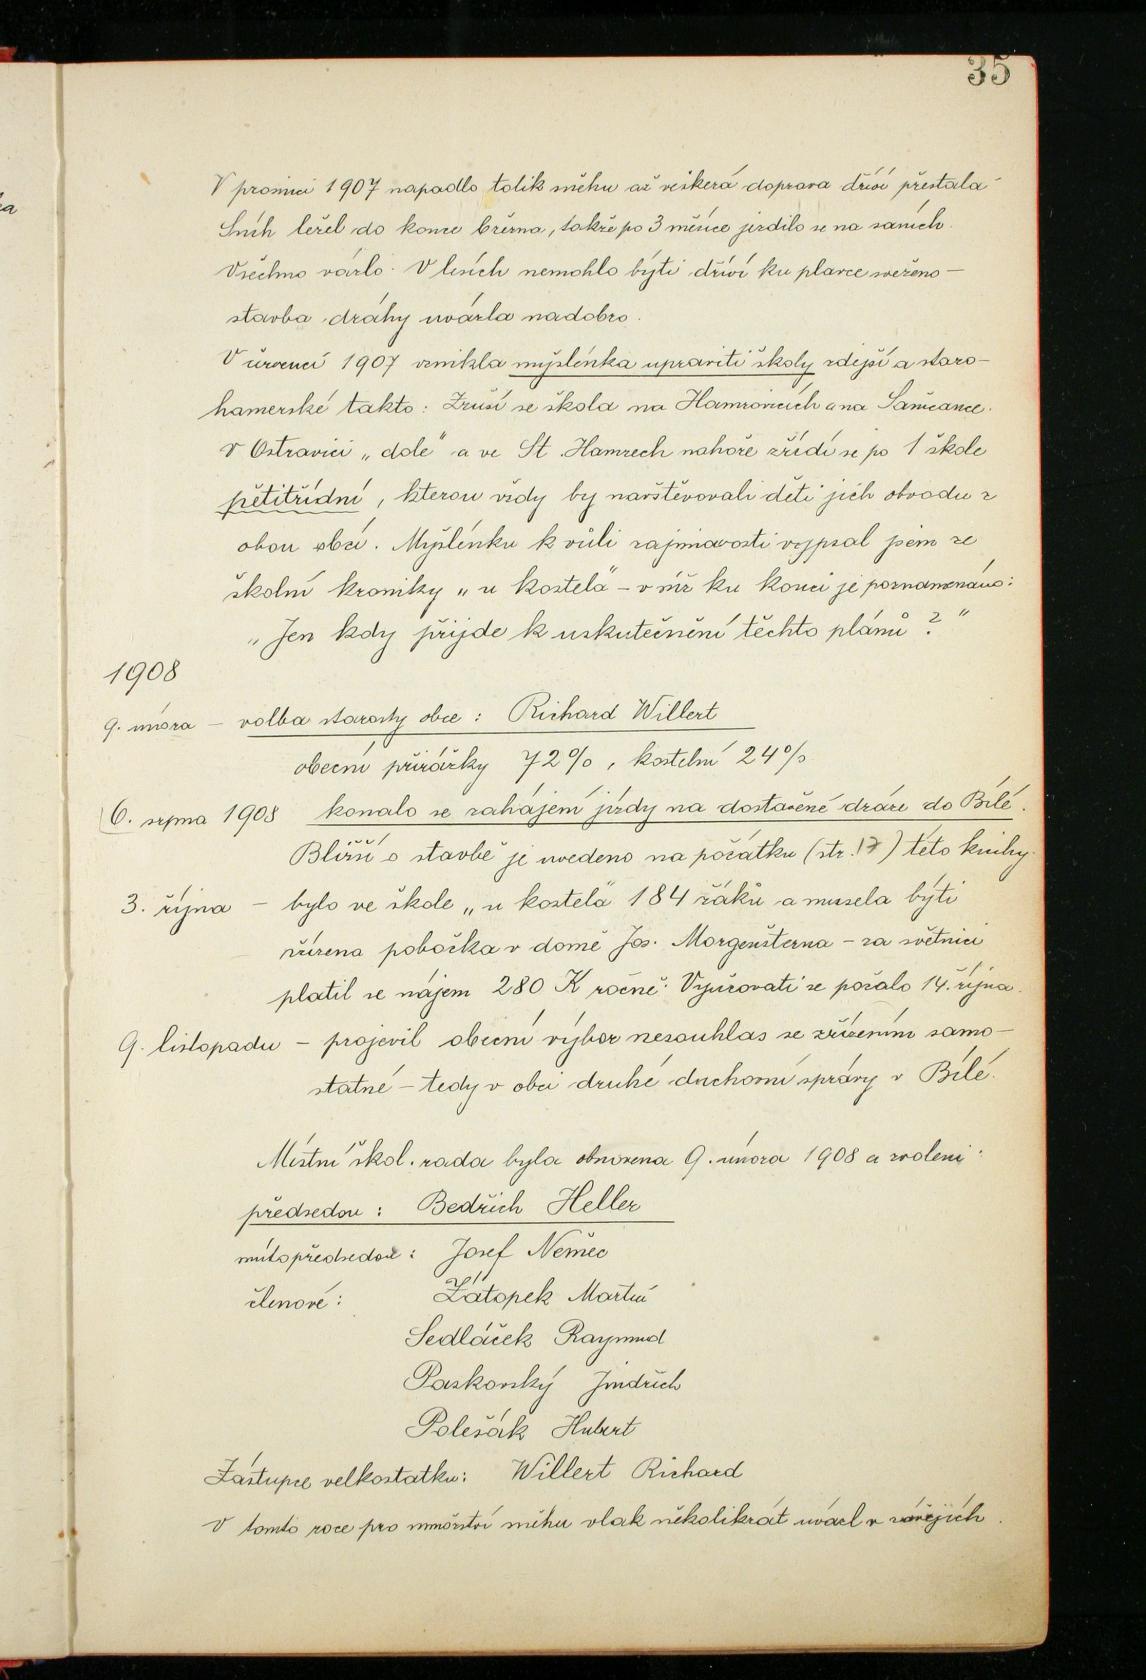 35
V prosinci 1907 napadlo tolik sněhu až veškerá doprava dříví přestala
Sníh ležel do konce března, takže po 3 měsíce jezdilo se na saních.
Všechno vázlo. V lesích nemohlo býti dříví ku plavce sveženo –
stavba dráhy uvázla nadobro.
V červenci 1907 vznikla myšlénka upraviti školy zdejší a staro-
hamerské takto: Zruší se škola na Hamrovicích a na Samčance.
v Ostravici „dole" a ve St. Hamrech nahoře zřídí se po 1 škole
pětitřídní, kterou vždy by navštěvovali děti jich obvodu z
obou obcí. Myšlénku k vůli zajímavosti vypsal jsem ze
školní kroniky „u kostela" – v níž ku konci je poznamenáno:
„Jen kdy přijde k uskutečnění těchto plánů ?"
1908
9. února – volba starosty obce : Richard Willert
obecní přirážky 72%, kostelní 24%
6. srpna 1908 konalo se zahájení jízdy na dostavěné dráze do Bílé.
Bližší o stavbě je uvedeno na počátku (str. 17) této knihy.
3. října – bylo ve škole „u kostela" 184 žáků a musela býti
zřízena pobočka v domě Jos. Morgenšterna – za světnici
platil se nájem 280 K ročně. Vyučovati se počalo 14. října.
9. listopadu – projevil obecní výbor nesouhlas se zřízením samo-
statné – tedy v obci druhé duchovní správy v Bílé.
Místní škol. rada byla obnovena 9. února 1908 a zvoleni :
předsedou : Bedřich Heller
místopředsedou : Josef Němec
členové : Žátopek Martin
Sedláček Raymund
Paskovský Jindřich
Polešák Hubert
Zástupce velkostatku: Willert Richard
V tomto roce pro množství sněhu vlak několikrát uvázl v závějích.